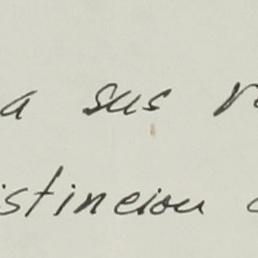 a sus
istincion